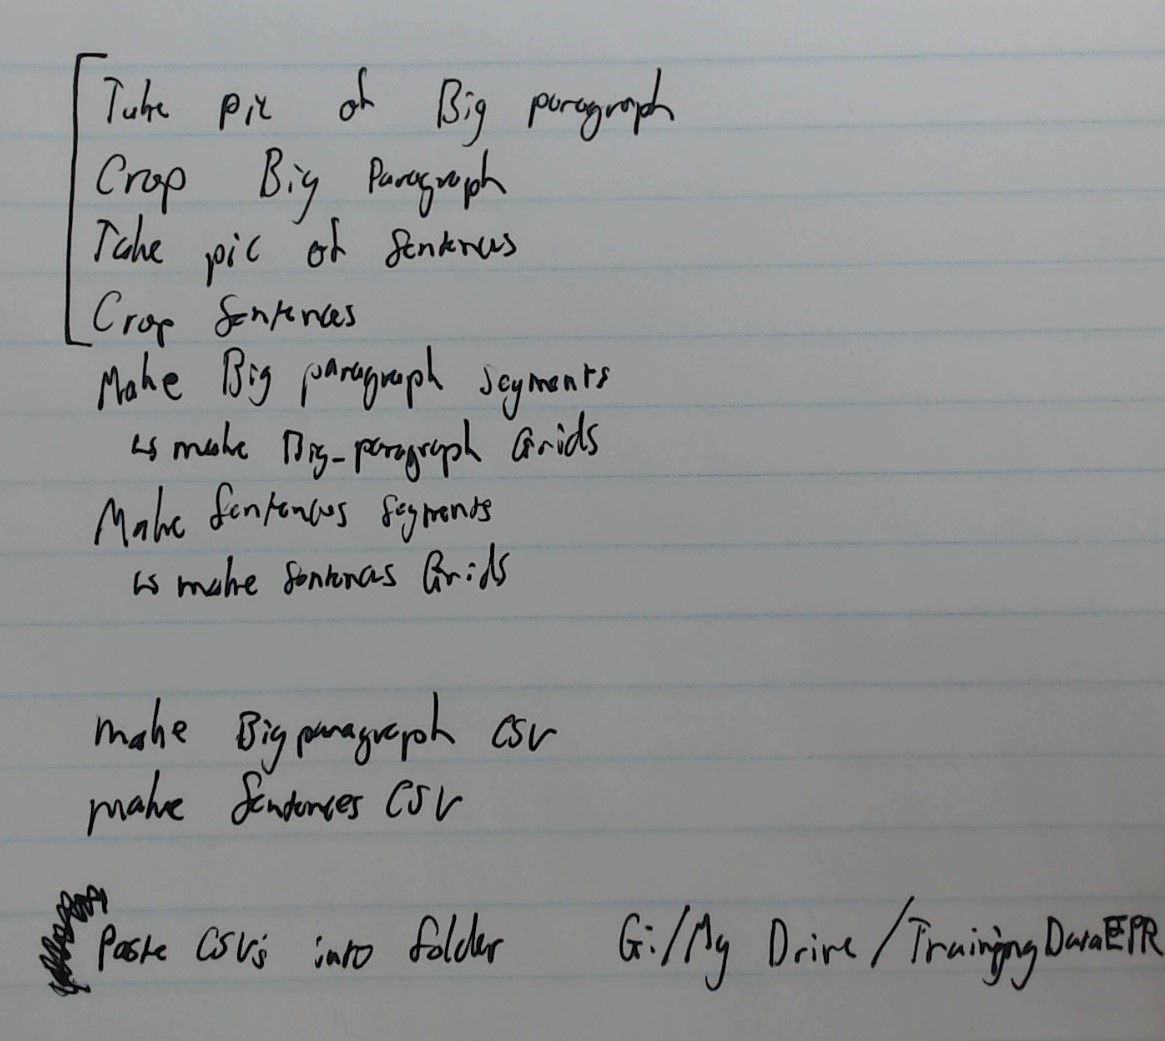 Take pic of Big paragraph
Crop Big Paragraph
Take pic of Sentences
Crop Sentences
Make Big paragraph segments
↳ make Big_paragraph Grids
Make Sentences segments
↳ make sentences Grids
make Big paragraph CSV
make Sentences CSV
Paste CSV's into folder G:/My Drive/TrainingDataEPR